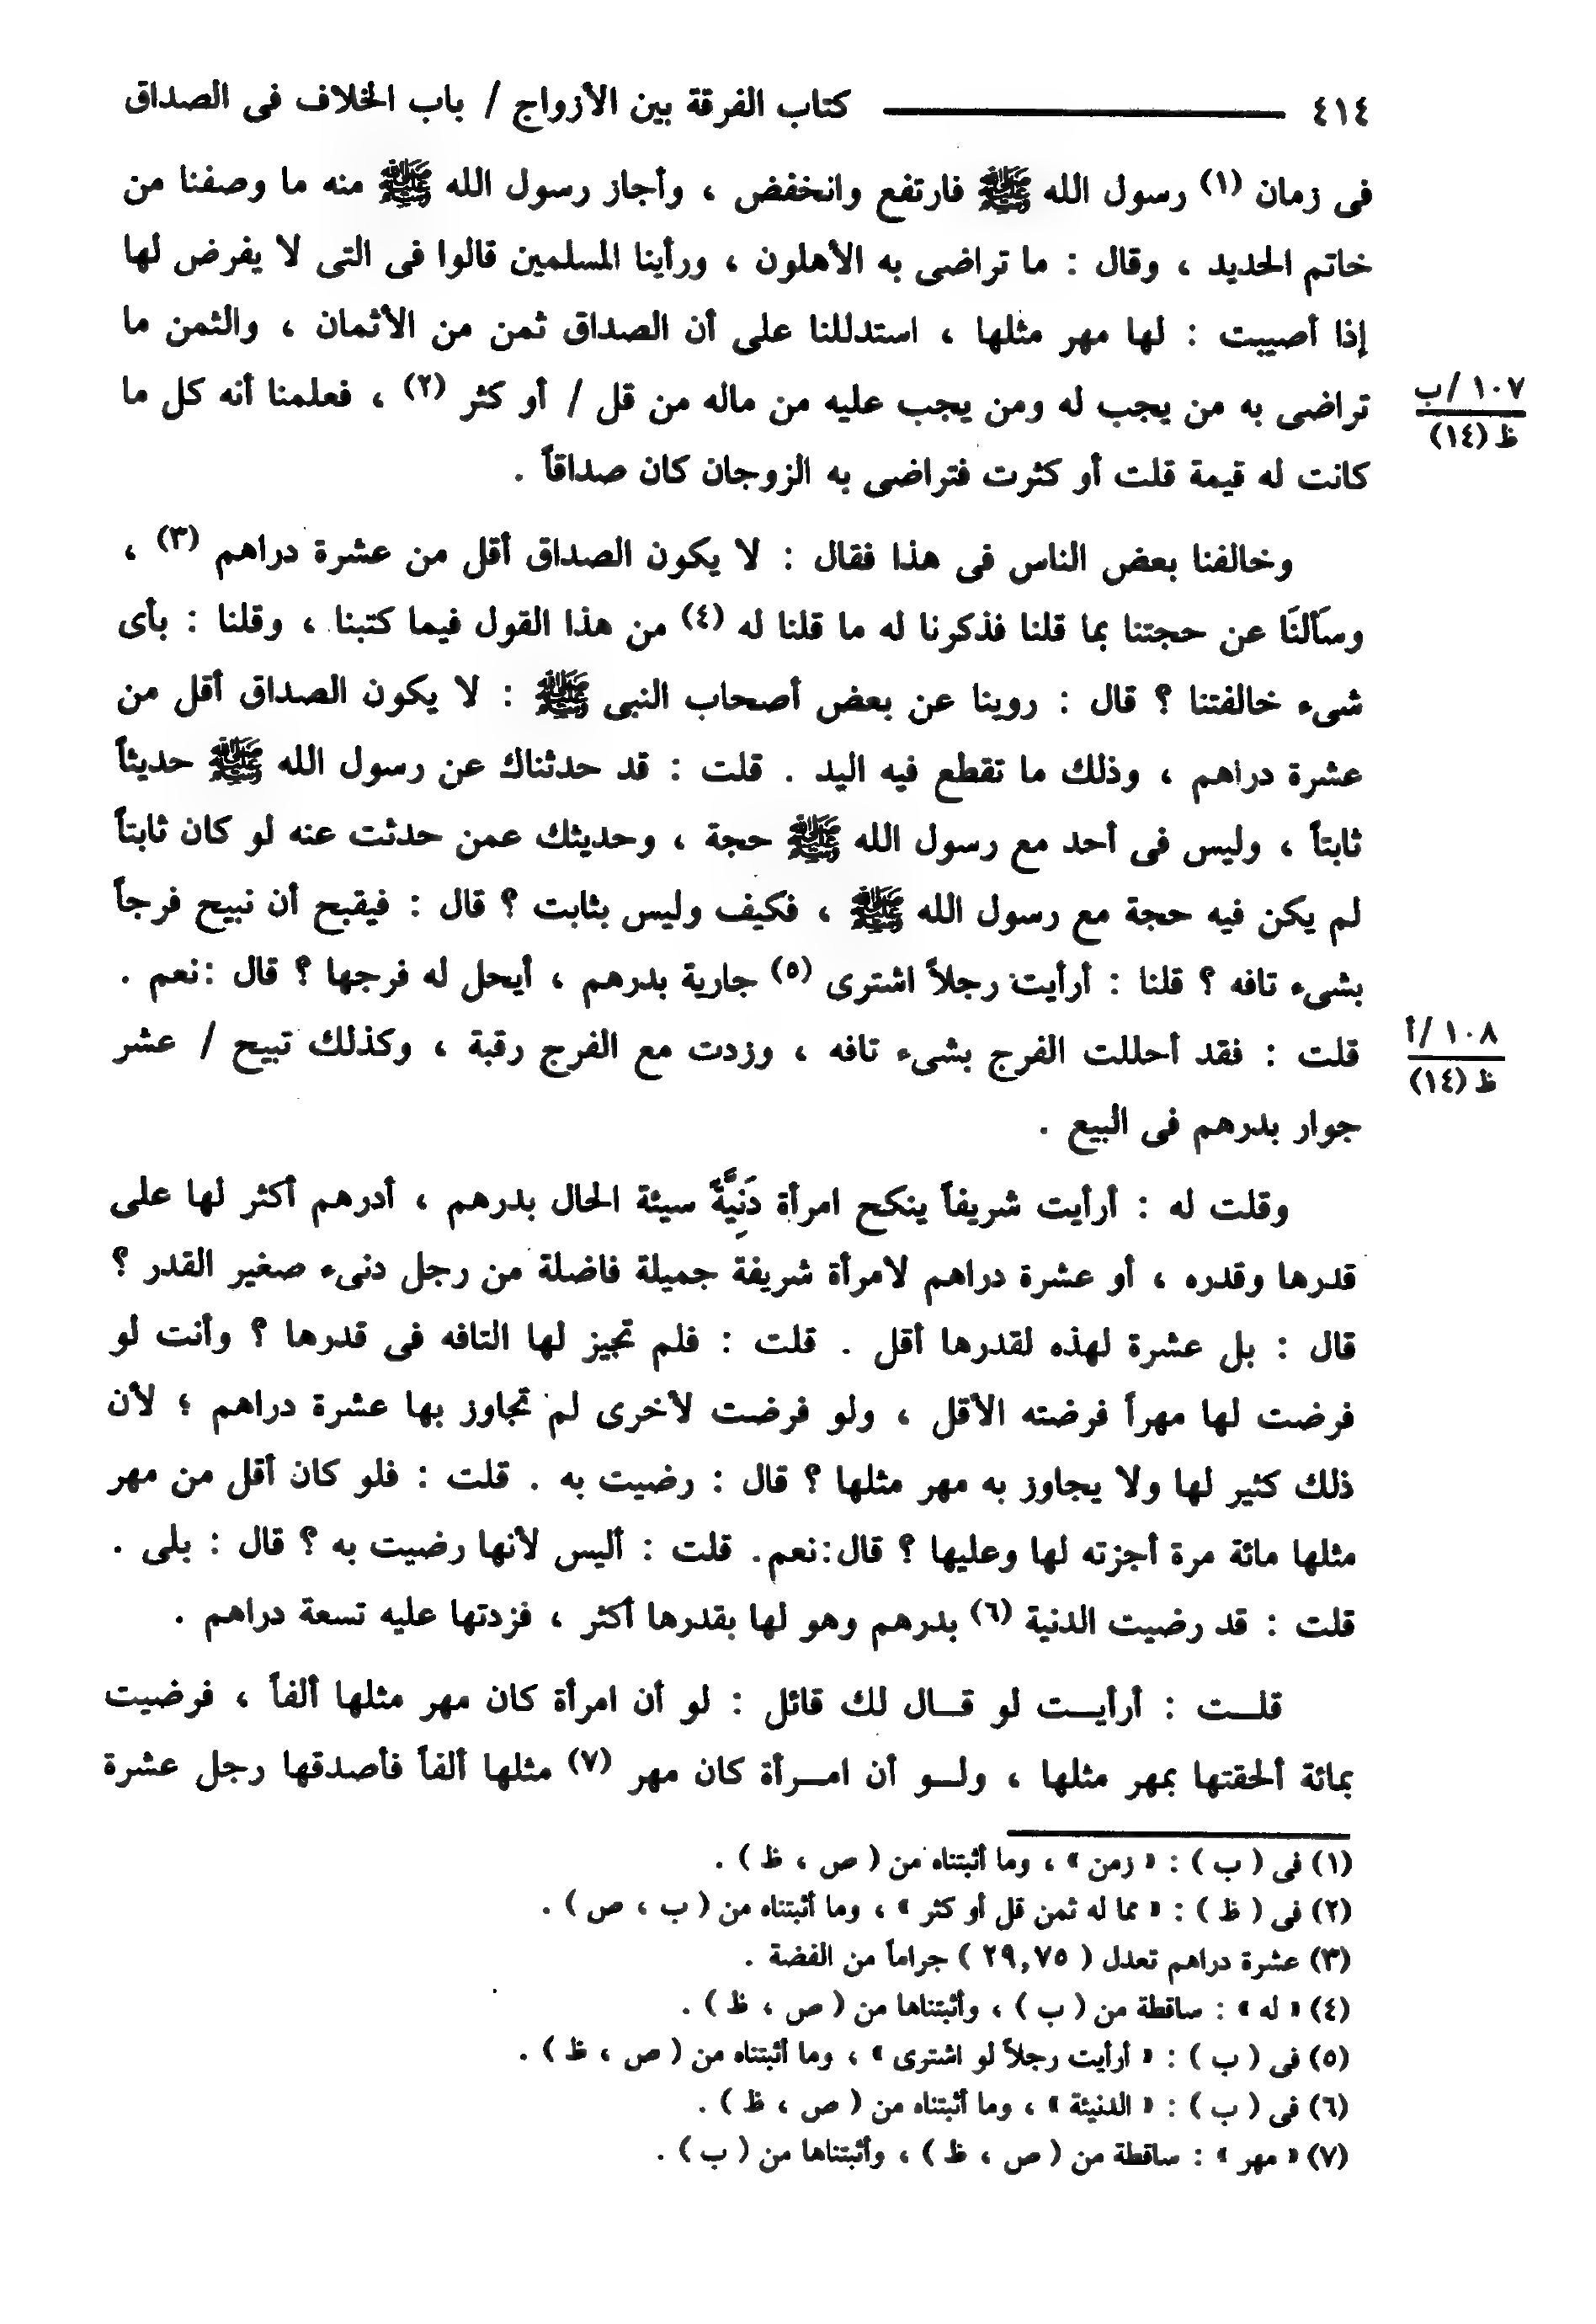 ٤١٤ كتاب الفرقة بين الأزواج / باب الخلاف فى الصداق
فى زمان (١) رسول الله ﷺ فارتفع وانخفض ، وأجاز رسول الله ﷺ منه ما وصفنا من
خاتم الحديد ، وقال : ما تراضى به الأهلون ، ورأينا المسلمين قالوا فى التى لا يفرض لها
إذا أصيبت : لها مهر مثلها ، استدللنا على أن الصداق ثمن من الأثمان ، والثمن ما
تراضى به من يجب له ومن يجب عليه من ماله من قل / أو كثر (٢) ، فعلمنا أنه كل ما
١٠٧ /ب
ظ (١٤)
كانت له قيمة قلت أو كثرت فتراضى به الزوجان كان صداقاً .
وخالفنا بعض الناس فى هذا فقال : لا يكون الصداق أقل من عشرة دراهم (٣) ،
وسَألنَا عن حجتنا بما قلنا فذكرنا له ما قلنا له (٤) من هذا القول فيما كتبنا ، وقلنا : بأى
شىء خالفتنا ؟ قال : روينا عن بعض أصحاب النبى ﷺ : لا يكون الصداق أقل من
عشرة دراهم ، وذلك ما تقطع فيه اليد . قلت : قد حدثناك عن رسول الله ﷺ حديثاً
ثابتاً ، وليس فى أحد مع رسول الله ﷺ حجة ، وحديثك عمن حدثت عنه لو كان ثابتاً
لم يكن فيه حجة مع رسول الله ﷺ ، فكيف وليس بثابت ؟ قال : فيقبح أن نبيح فرجاً
بشىء تافه ؟ قلنا : أرأيت رجلاً اشترى (٥) جارية بدرهم ، أيحل له فرجها ؟ قال :نعم .
قلت : فقد أحللت الفرج بشىء تافه ، وزدت مع الفرج رقبة ، وكذلك تبيح / عشر
١٠٨ /أ
ظ (١٤)
جوار بدرهم فى البيع .
وقلت له : أرأيت شريفاً ينكح امرأة دَنِيَّةً سيئة الحال بدرهم ، أدرهم أكثر لها على
قدرها وقدره ، أو عشرة دراهم لامرأة شريفة جميلة فاضلة من رجل دنىء صغير القدر ؟
قال : بل عشرة لهذه لقدرها أقل . قلت : فلم تجيز لها التافه فى قدرها ؟ وأنت لو
فرضت لها مهراً فرضته الأقل ، ولو فرضت لأخرى لم تجاوز بها عشرة دراهم ؛ لأن
ذلك كثير لها ولا يجاوز به مهر مثلها ؟ قال : رضيت به . قلت : فلو كان أقل من مهر
مثلها مائة مرة أجزته لها وعليها ؟ قال:نعم. قلت : أليس لأنها رضيت به ؟ قال : بلى .
قلت : قد رضيت الدنية (٦) بدرهم وهو لها بقدرها أكثر ، فزدتها عليه تسعة دراهم .
قلـــت : أرأيـــت لو قـــال لك قائل : لو أن امرأة كان مهر مثلها ألفاً ، فرضيت
بمائة ألحقتها بمهر مثلها ، ولـــو أن امـــرأة كان مهر (٧) مثلها ألفاً فأصدقها رجل عشرة
(١) فى ( ب ) : « زمن » ، وما أثبتناه من ( ص ، ظ ) .
(٢) فى ( ظ ) : « مما له ثمن قل أو كثر » ، وما أثبتناه من ( ب ، ص ) .
(٣) عشرة دراهم تعدل ( ٢٩,٧٥ ) جراماً من الفضة .
(٤) « له » : ساقطة من ( ب ) ، وأثبتناها من ( ص ، ظ ) .
(٥) فى ( ب ) : « أرأيت رجلاً لو اشترى » ، وما أثبتناه من ( ص ، ظ ) .
(٦) فى ( ب ) : « الدنيئة » ، وما أثبتناه من ( ص ، ظ ) .
(٧) « مهر » : ساقطة من ( ص ، ظ ) ، وأثبتناها من ( ب ) .